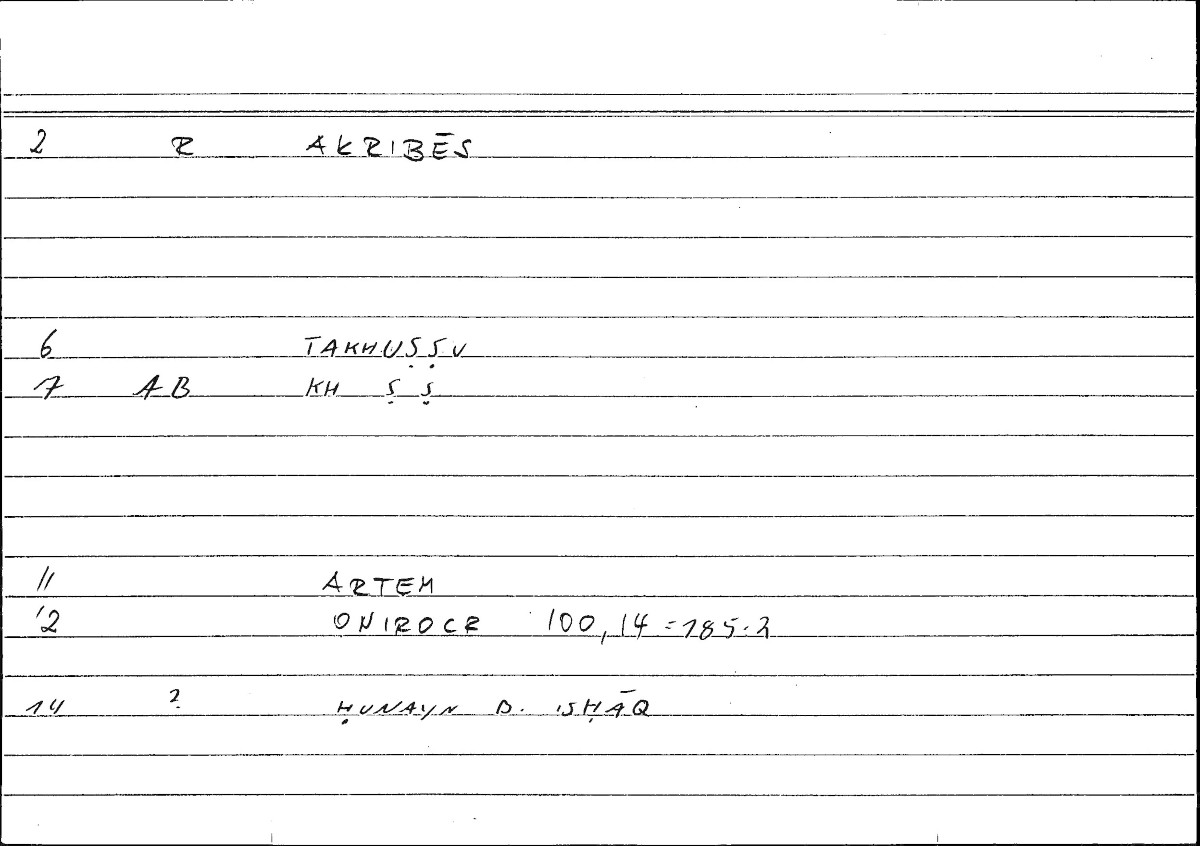 2 R AKRIBĒS
6 TAKHUṢṢU
7 AB KH Ṣ Ṣ
11 ARTEM
12 ONIROCR 100,14 = 185.2
14 ? ḤUNAYN B. ISḤĀQ